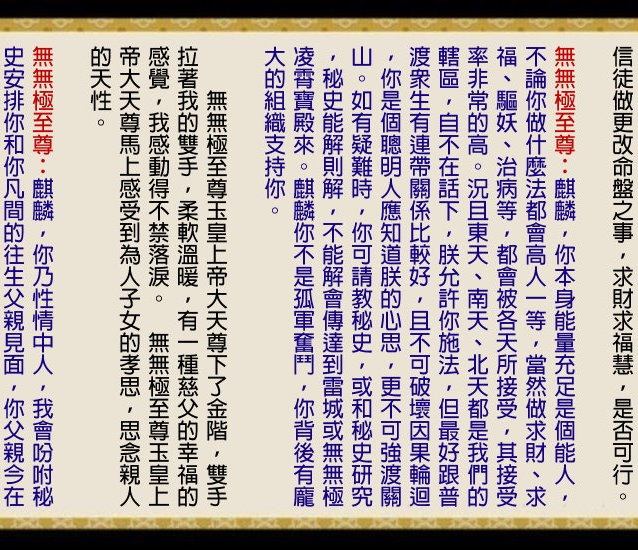 信徒做更改命盤之事，求財求福慧，是否可行。
無無極至尊：麒麟，你本身能量充足是個能人，
不論你做什麼法都會高人一等，當然做求財、求
福、驅妖、治病等，都會被各天所接受，其接受
率非常的高。況且東天、南天、北天都是我們的
轄區，自不在話下，朕允許你施法，但最好跟普
渡衆生有連帶關係比較好，且不可破壞因果輪迴
，你是個聰明人應知道朕的心思，更不可強渡關
山。如有疑難時，你可請教秘史，或和秘史研究
，秘史能解則解，不能解會傳達到雷城或無無極
凌霄寶殿來。麒麟你不是孤軍奮鬥，你背後有龐
大的組織支持你。
無無極至尊玉皇上帝大天尊下了金階，雙手
拉著我的雙手，柔軟溫暖，有一種慈父的幸福的
感覺，我感動得不禁落淚。　無無極至尊玉皇上
帝大天尊馬上感受到為人子女的孝思，思念親人
的天性。
無無極至尊：麒麟，你乃性情中人，我會吩咐秘
史安排你和你凡間的往生父親見面，你父親今在